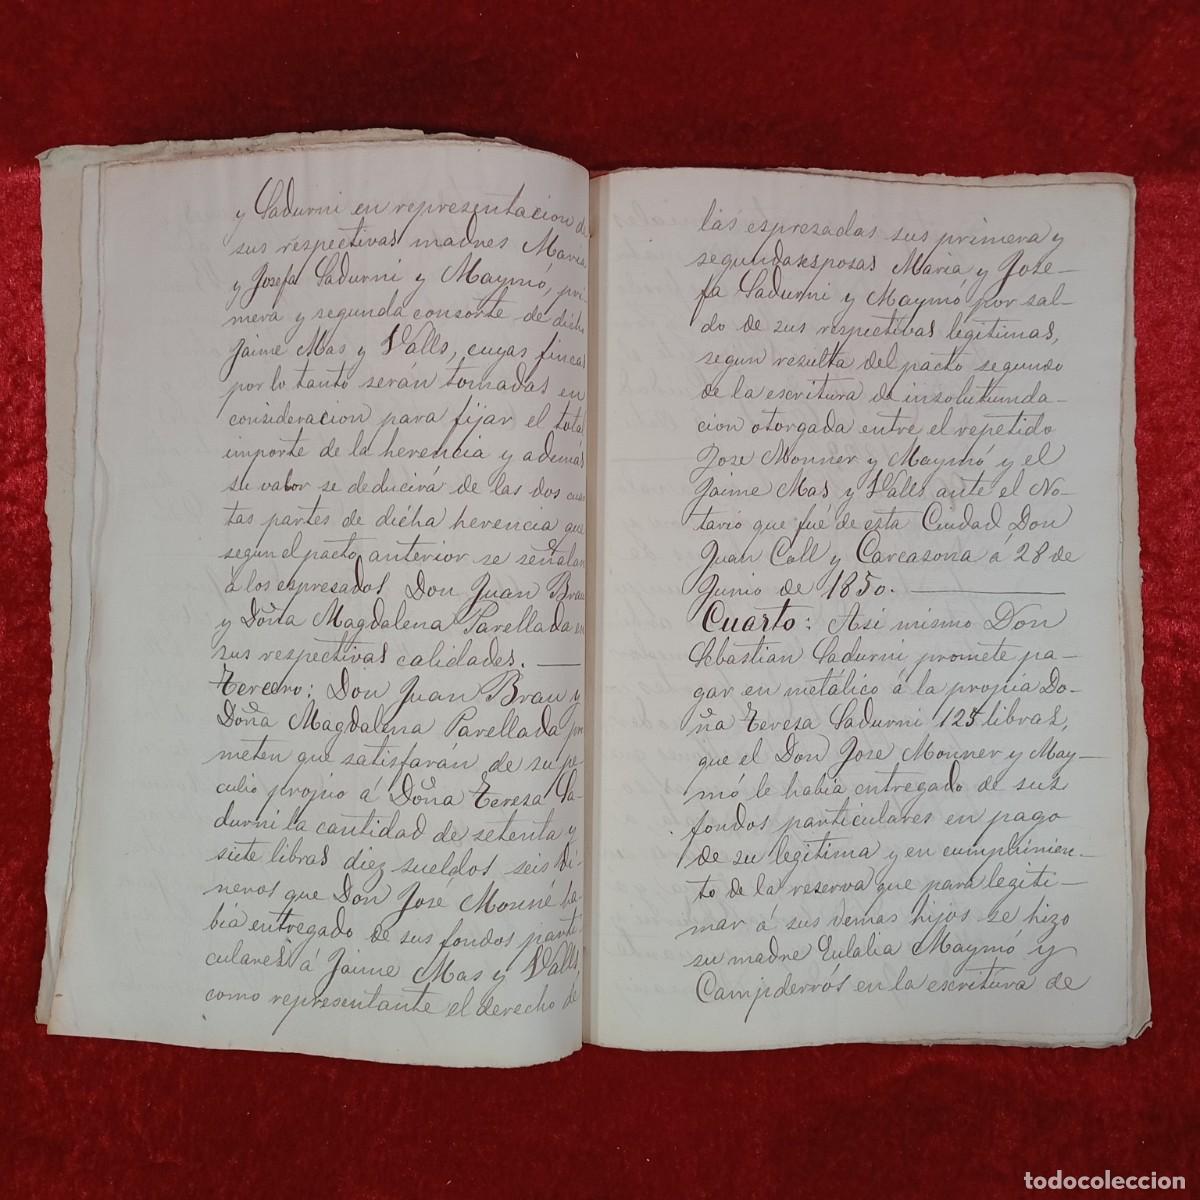 y Sadurni en representacion de
sus respectivas madres Maria
y Josefa Sadurni y Maymó, pri-
mera y segunda consorte de dicho
Jaime Mas y Valls, cuyas fincas
por lo tanto serán tomadas en
consideracion para fijar el total
importe de la herencia y además
su valor se deducirá de las dos cuar
tas partes de dicha herencia que
segun el pacto anterior se señalan
á los espresados Don Juan Brau
y Doña Magdalena Parellada en
sus respectivas calidades. —
Tercero: Don Juan Brau y
Doña Magdalena Parellada pro
meten que satisfarán de su pe
culio propio á Doña Teresa Sa-
durni la cantidad de setenta y
siete libras diez sueldos seis di-
neros que Don José Monné ha-
bia entregado de sus fondos parti
culares á Jaime Mas y Valls,
como representante el derecho de
las espresadas sus primera y
segunda esposas Maria y Jose-
fa Sadurni y Maymó por sal-
do de sus respectivas legitimas,
segun resulta del pacto segundo
de la escritura de insolutunda-
cion otorgada entre el repetido
Jose Monner y Maymó y el
Jaime Mas y Valls ante el No-
tario que fué de esta Ciudad Don
Juan Coll y Carcasona á 28 de
Junio de 1850. —
Cuarto: Asi mismo Don
Sebastian Sadurni promete pa-
gar en metálico á la propia Do-
ña Teresa Sadurni 125 libras,
que el Don Jose Monner y May-
mó le habia entregado de sus
fondos particulares en pago
de su legitima y en cumplimien-
to de la reserva que para legiti-
mar á sus demas hijos se hizo
su madre Eulalia Maymó y
Campderrós en la escritura de
todocoleccion